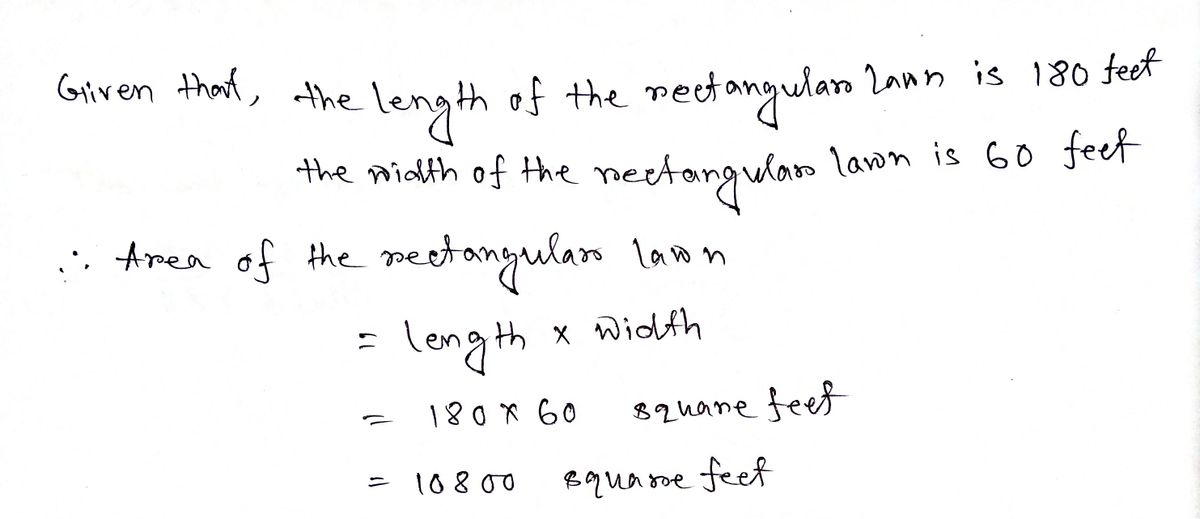 Given that, the length of the rectangular lawn is 180 feet
the width of the rectangular lawn is 60 feet
∴ Area of the rectangular lawn
= length x width
= 180 x 60 square feet
= 10800 square feet